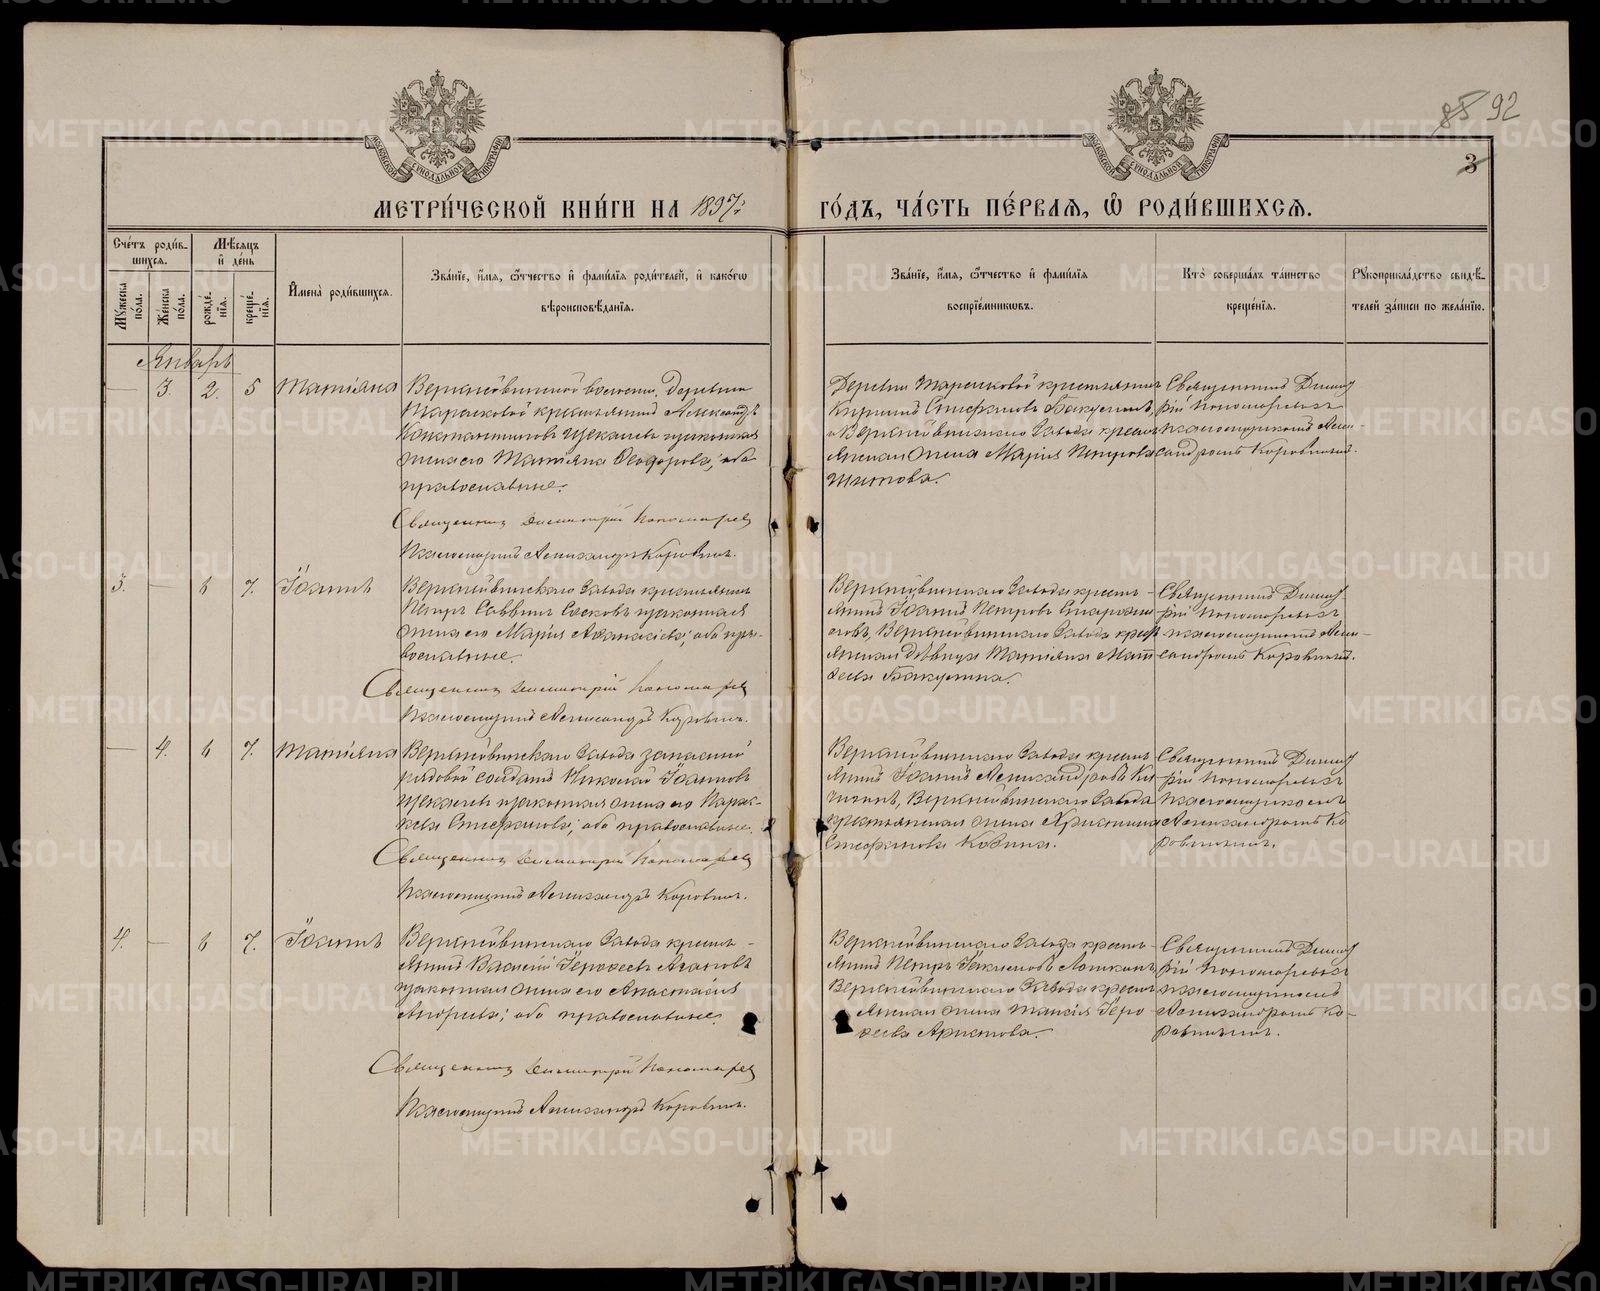 85 92
3
МЕТРИ́ЧЕСКОЙ КНИ́ГИ НА 1897 г.
ГО́ДЪ, ЧА́СТЬ ПЕ́РВАѦ, Ѡ҆ РОДИ́ВШИХСѦ.
Сче́тъ роди́в-
шихсѧ.
Мꙋ́жеска по́ла.
Же́нска по́ла.
Мѣ́сѧцъ
и҆ де́нь
рожде́-
нїѧ.
креще́-
нїѧ.
И҆мена̀ роди́вшихсѧ.
Зва́нїе, и҆́мѧ, ѻ҆́тчество и҆ фами́лїѧ роди́телей, и҆ како́гѡ
вѣроисповѣ́данїѧ.
Зва́нїе, и҆́мѧ, ѻ҆́тчество и҆ фами́лїѧ
воспрїе́мникѡвъ.
Кто̀ соверша́лъ та́инство
креще́нїѧ.
Рꙋкоприкла́дство свидѣ́-
телей за́писи по жела́нїю.
Январь
— 3. 2. 5 Татіана
деревни
Тарасковой крестьянинъ Александръ
Константиновъ Щекалевъ и законная
жена его Татіана Ѳеодорова; оба
православные.
Священник Димитрій Пономарев
Псаломщикъ Александръ Коровин.
Деревни Тарасковой крестьянинъ
Кириллъ Стефановъ Бакулинъ,
и Верхнейвинскаго Завода кресть-
янская жена Марія Петрова
Титова.
Священникъ Димит-
рій Пономаревъ
псаломщикомъ Алек-
сандромъ Коровинымъ.
3. — 6 7. Іоаннъ
Верхнейвинскаго Завода крестьянинъ
Петръ Саввинъ и законная
жена его Марія Аѳанасіева; оба пра-
вославные.
Священник Димитрій Пономарев
Псаломщикъ Александръ Коровин.
Верхнейвинскаго Завода кресть-
янинъ Іоаннъ Петровъ
Верхнейвинскаго Завода крест-
янская дѣвица Татіана Мат-
ѳеева Бакулина.
Священникъ Димит-
рій Пономаревъ
псаломщикомъ Алек-
сандромъ Коровинымъ.
— 4. 6 7. Татіана
Верхнейвинскаго Завода запасной
рядовой солдатъ Николай Іоанновъ
Щекалевъ и законная жена его Парас-
кева Стефанова; оба православные.
Священник Димитрій Пономарев
Псаломщикъ Александръ Коровин.
Верхнейвинскаго Завода кресть-
янинъ Іоаннъ Александровъ
Верхнейвинскаго Завода
крестьянская жена Христина
Стефанова
Священникъ Димит-
рій Пономаревъ
псаломщикомъ
Александромъ Ко-
ровинымъ.
4. — 6 7. Іоаннъ
Верхнейвинскаго Завода кресть-
янинъ Василій Іероѳеевъ Агаповъ
и законная жена его Анастасія
Андреева; оба православные.
Священник Димитрій Пономарев
Псаломщикъ Александръ Коровин.
Верхнейвинскаго Завода кресть-
янинъ Петръ
Верхнейвинскаго Завода кресть-
янская жена Таисія Іеро-
ѳеева Аристова.
Священникъ Димит-
рій Пономаревъ
псаломщикомъ
Александромъ Ко-
ровинымъ.
METRIKI.GASO-URAL.RU